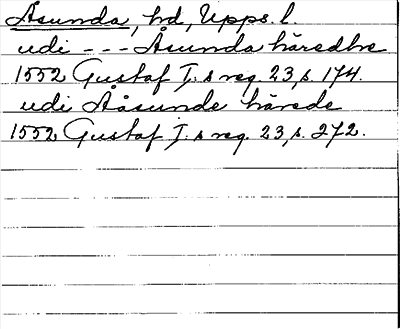 Åsunda, hd, Upps. l.
udi --- Åsunda häredhe
1552 Gustaf I:s reg. 23, s. 174.
udiÅåsunde härede
1552 Gustaf I:s reg. 23, s. 272.